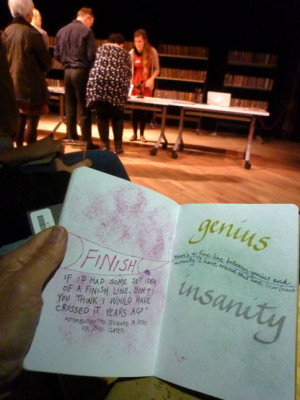 FINISH
"IF I'D HAD SOME SET IDEA
OF A FINISH LINE, DON'T
YOU THINK I WOULD HAVE
CROSSED IT YEARS AGO"
ATTRIBUTED TO
GATES
genius
There's a fine line between genius and
insanity. I have erased this line.
insanity